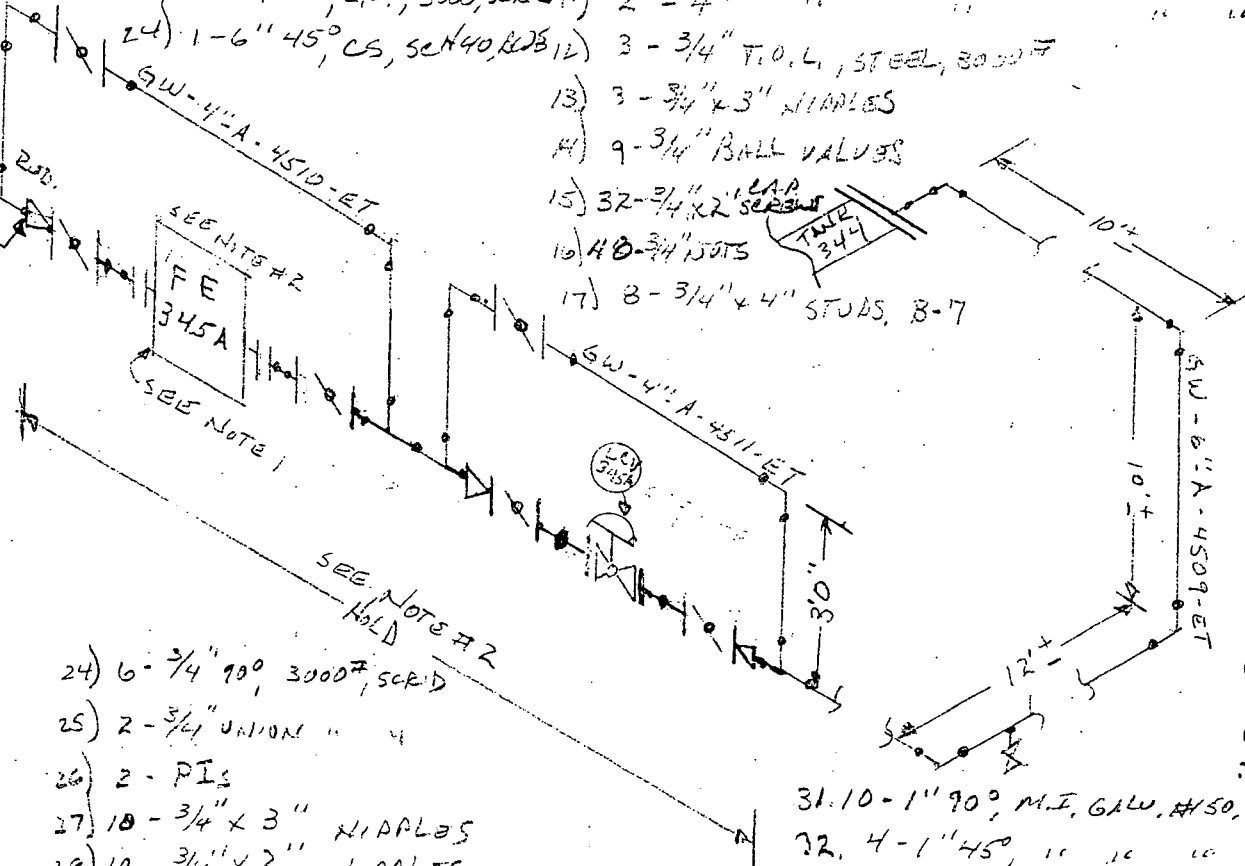 24) 1-6" 45° CS, SCH40,
12) 3 - 3/4" T.O.L., STEEL, 3000#
13) 3 - 3/4" x 3" NIPPLES
14) 9 - 3/4" BALL VALVES
15) 32 - 3/4" x 2" CAP SCREWS
16) 48 - 3/4" NUTS
17) 8 - 3/4" x 4" STUDS, B-7
GW-4"-A-4510-ET
RED.
SEE NOTE #2
FE
345A
SEE NOTE 1
TANK
344
10'±
GW-4"-A-4511-ET
LCV
345A
3'0"
10'±
GW-6"-A-4509-ET
12'±
SEE NOTE #2
HOLD
24) 6 - 3/4" 90°, 3000#, SCR'D
25) 2 - 3/4" UNION " "
26) 2 - PIs
27) 10 - 3/4" x 3" NIPPLES
31. 10 - 1" 90°, M.I. GALV. #150,
32. 4 - 1" 45°, " " "